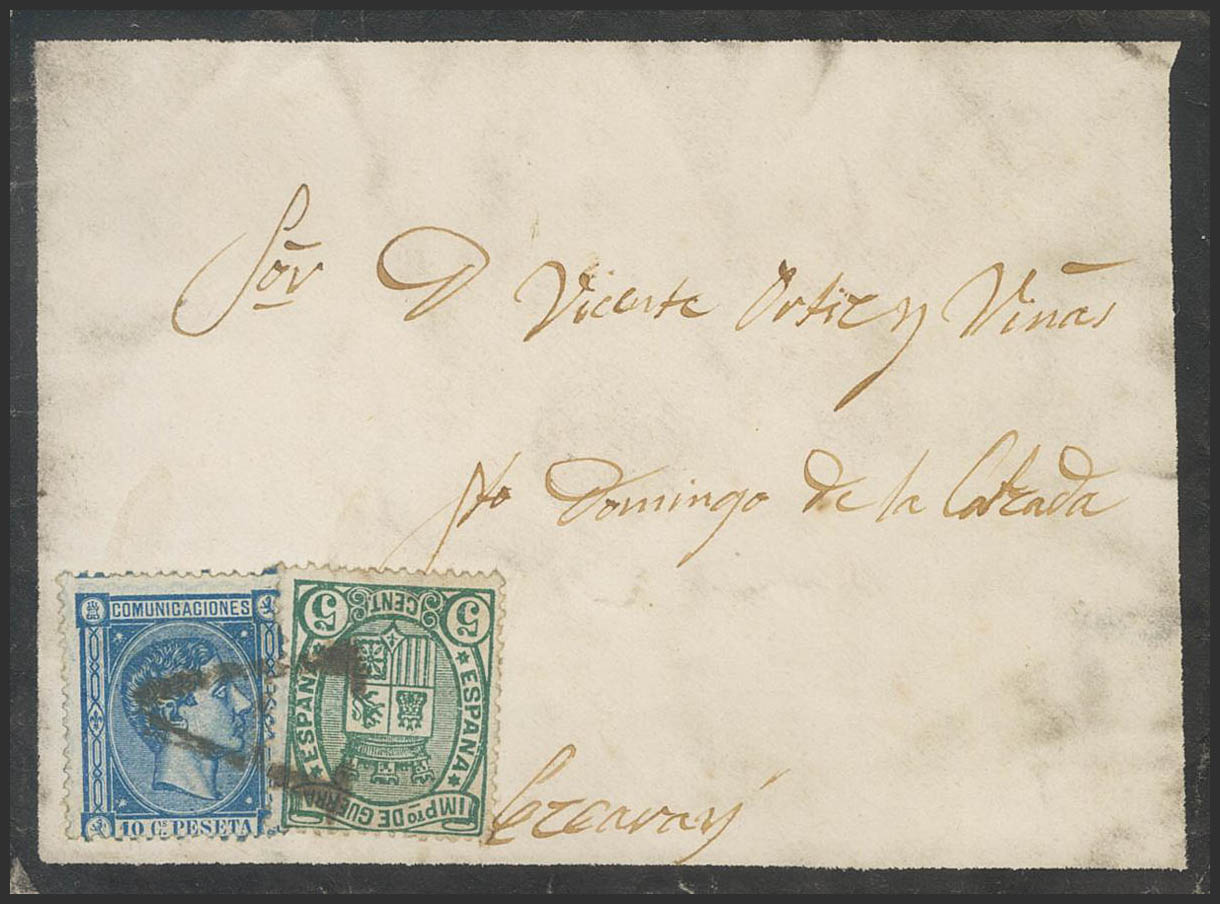 Sor D Vicente Ortiz y Viñas
Sto Domingo de la Calzada
Ezcaray
COMUNICACIONES
10 Cs PESETA
5 CENTs 5
ESPAÑA ESPAÑA
IMPto DE GUERRA